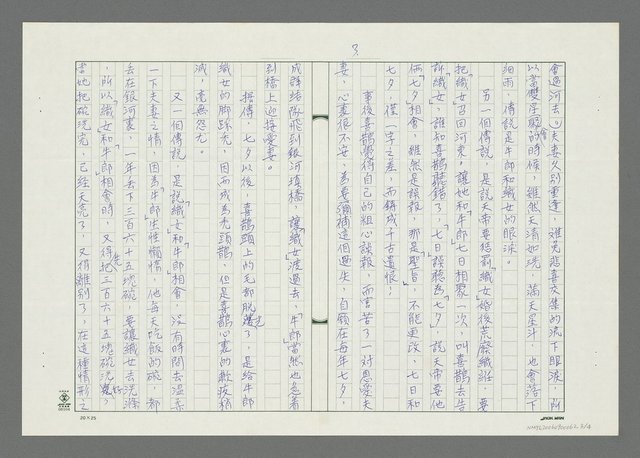 3
會過河去，夫妻久別重逢，難免悲喜交集的流下眼淚，所
以當雙星會的時候，雖然天清如洗，滿天星斗，也會落下
細雨，傳說是牛郎和織女的眼淚。
另一個傳說，是說天帝要怪罰織女婚後荒廢織紝，要
把「織女」召回河東，讓她和「牛郎」七日相聚一次，叫喜鵲去告
訴「織女」，誰知喜鵲聽錯了，「七日」誤聽為「七夕」，說天帝要他
倆「七夕」相會，雖然是誤報，那是「聖旨」，不能更改，七日和
七夕，僅一字之差，而鑄成千古遺恨，
事後喜鵲覺得自己的粗心誤報，而害苦了一對恩愛夫
妻，心裏很不安，為要彌補這個過失，自願在每年七夕，
成群結隊飛到銀河填橋，讓「織女」渡過去，「牛郎」當然也急着
到橋上迎接愛妻。
據傳，七夕以後，喜鵲頭上的毛都脫光了，是給牛郎
織女的腳踩禿，因而成為禿頭鵲，但是喜鵲心裏的歉疚稍
減，毫無怨尤。
又一個傳說，是說「織女」和「牛郎」相會，沒有時間去溫柔
一下夫妻之情，因為「牛郎」生性懶惰，他每天吃飯的碗，都
丟在銀河裏，一年丟下三百六十五塊碗，要讓織女去洗滌
，所以「織女」和「牛郎」相會時，又得先把三百六十五塊碗洗好，
當她把碗洗完，已經天亮了，又得離別了，在這種情形之
20×25
NMTL20060900062 3/4